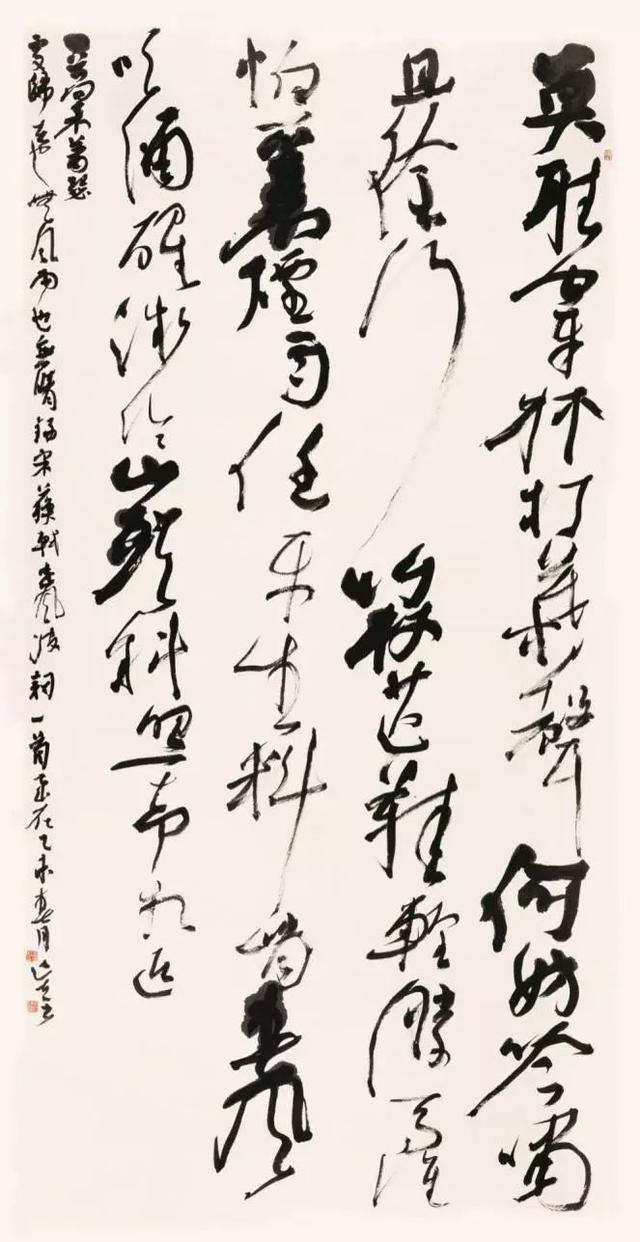 莫聽穿林打葉聲何妨吟嘯
且徐行竹杖芒鞋輕勝馬誰
怕一蓑煙雨任平生料峭春風
吹酒醒微冷山頭斜照卻相迎
回首向來蕭瑟
處歸去也無風雨也無晴錄宋蘇軾定風波詞一首歲在乙未春月書